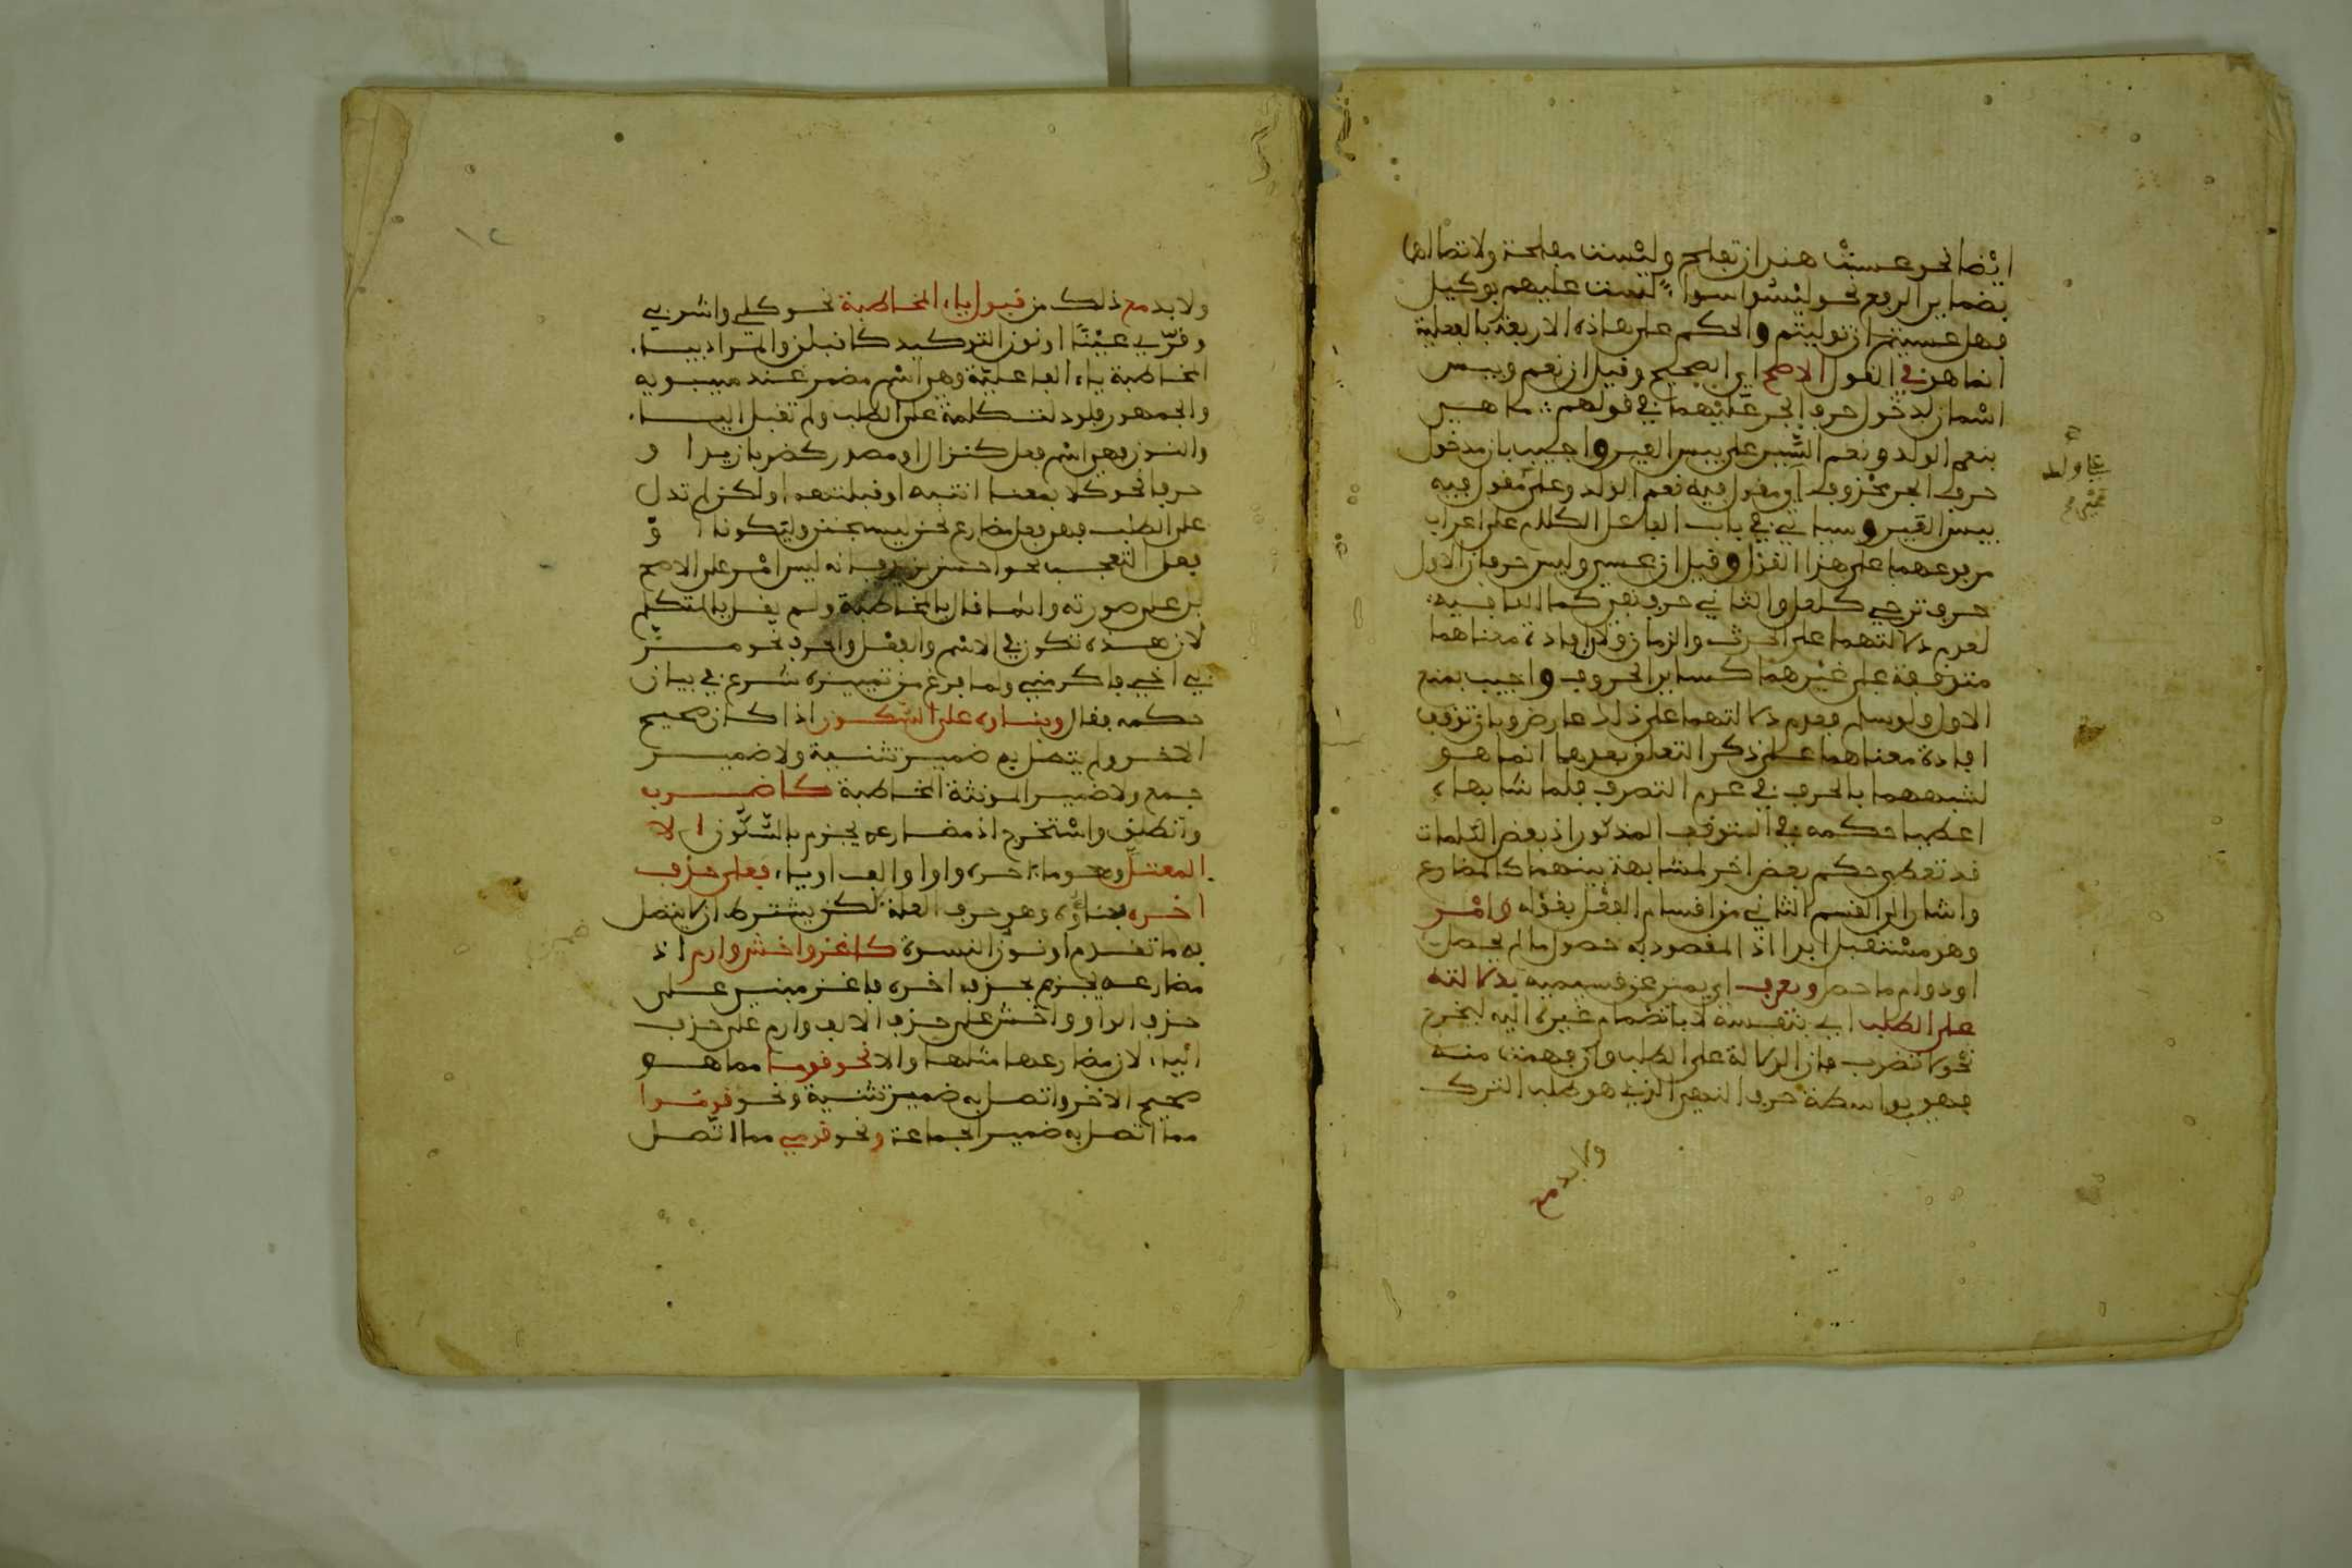 ايضا نحو عست هند ان تفلح وليست مفلحة ولاتصالها
بضماير الرفع نحو ليسوا سواء لست عليهم بوكيل
فهل عسيتم ان توليتم والحكم على هاذه الاربعة بالفعلية
انما هو في القول الاصح اي الصحيح وقيل ان نعم وبيس
اسمان لدخول حرف الجر عليهما في قولهم ما هي
بنعم الولد ونعم السير على بيس العير واجيب بان مدخول
حرف الجر محذوف اي ومقول فيه نعم الولد وعلى مقول فيه
بيس العير وسياتي في باب الفاعل الكلام على اعراب
مرفوعهما على هذا القول وقيل ان عسى وليس حرفان الاول
حرف ترجي كلعل والثاني حرف نفي كما النافية
لعدم دلالتهما على الحدث والزمان ولان افادة معناهما
متوقفة على غيرهما كساير الحروف واجيب بمنع
الاول ولو سلم فعدم دلالتهما على ذلك عارض وبان توقف
افادة معناهما على ذكر التعلق بعدهما انما هو
لشبههما بالحرف في عدم التصرف فلما شابهاه
اعطيا حكمه في التوقف المذكور اذ بعض الكلمات
قد تعطى حكم بعض اخر لمشابهة بينهما كالمضارع
واشار الى القسم الثاني من اقسام الفعل بقوله وامر
وهو مستقبل ابدا اذ المقصود به حصول ما لم يحصل
او دوام ما حصل ويعرف اي يميز عن قسيميه بدلالته
على الطلب اي بنفسه لا بانضمام غيره اليه ليخرج
نحو لا تضرب فان الدلالة على الطلب وان فهمت منه
فهو بواسطة حرف النهي الذي هو طلب الترك
ولا بد مع
ولا بد مع ذلك من قبول ياء المخاطبة نحو كلي واشربي
وقري عينا او نون التوكيد كاقبلن والمراد بياء
المخاطبة ياء الفاعلية وهي اسم مضمر عند سيبويه
والجمهور فلو دلت كلمة على الطلب ولم تقبل الياء
والنون فهي اسم فعل كنزال او مصدر كضربا زيدا و
حرف نحو كلا بمعنى انتبه او قبلتهما ولكن لم تدل
على الطلب فهي فعل مضارع نحو ليسجنن وليكونا او
فعل التعجب نحو احسن بزيد فانه ليس امر على الاصح
بل على صورته وانما قال ياء المخاطبة ولم يقل ياء المتكلم
لان هذه تكون في الاسم والفعل والحرف نحو مر
بي اخي فاكرمني ولما فرغ من تمييزه شرع في بيان
حكمه فقال وبناوه على السكون اذا كان صحيح
الاخر ولم يتصل به ضمير تثنية ولا ضمير
جمع ولا ضمير المونثة المخاطبة كاضرب
وانطلق واستخرج اذ مضارعه يجزم بالسكون الا
المعتل وهو ما اخره واوا او الف او ياء فعلى حذف
اخره بناؤه وهو حرف العلة لكن يشترط ان لا يتصل
به ما تقدم او نون النسوة كاغز واخش وارم اذ
مضارعه يجزم بحذف اخره فاغز مبني على
حذف الواو واخش على حذف الالف وارم على حذف
الياء لان مضارعها مثلها والا نحو قوما مما هو
صحيح الاخر واتصل به ضمير تثنية ونحو قوموا
مما اتصل به ضمير الجماعة ونحو قومي مما اتصل